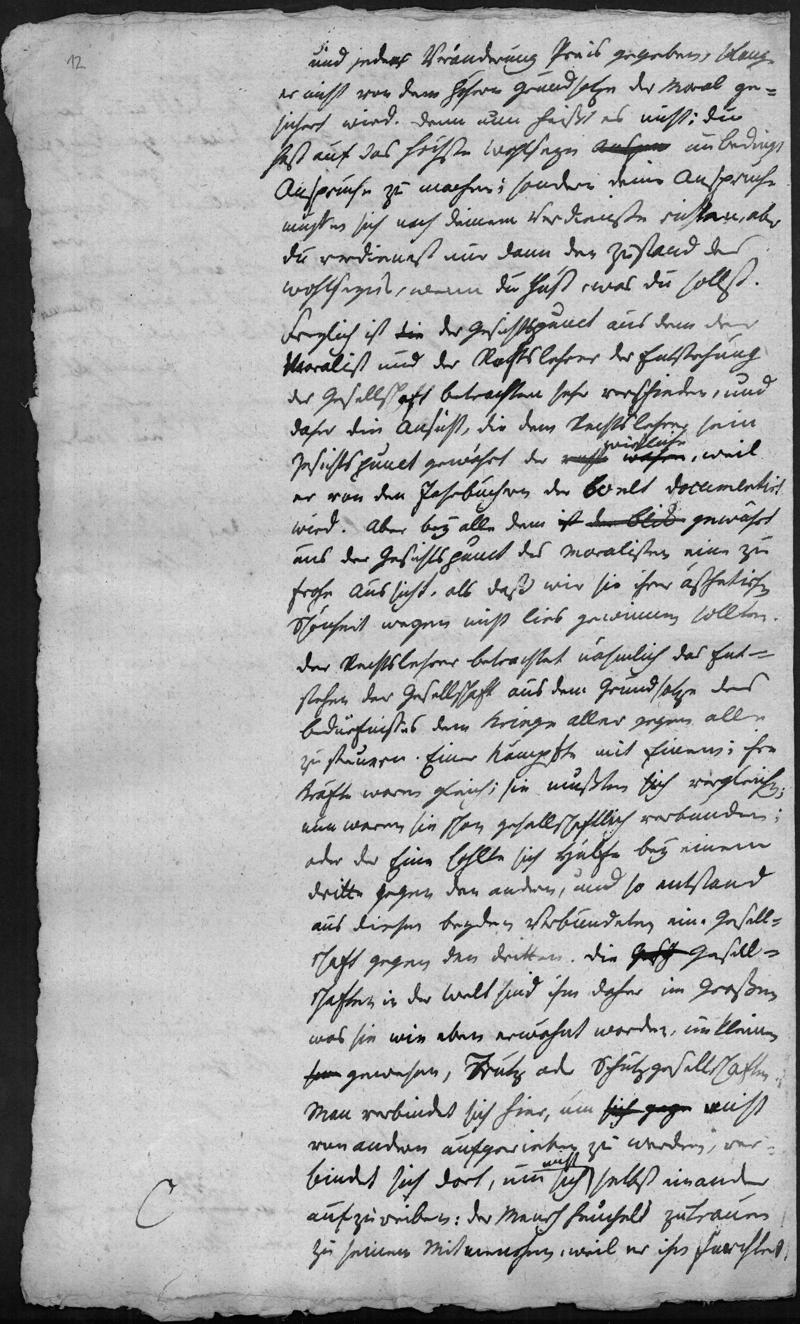 12
und jeder Veränderung Preis gegeben, solang
er nicht von dem höhern Grundsatze der Moral ge=
sichert wird. Denn nun heißt es nicht: du
hast auf das höchste Wohlseyn unbedingt
Ansprüche zu machen; sondern deine Ansprüche
müßen sich nach deinem Verdienste richten, aber
du verdienest nur dann den Zustand des
Wohlseyns, wenn du thust, was du sollst.
Freylich ist die der Gesichtspunct aus dem der
Moralist und der Rechtslehrer die Entstehung
der Gesellschaft betrachten sehr verschieden, und
daher die Ansicht, die dem Rechtslehrer sein
Gesichtspunct gewährt der wirkliche wahre, weil
er von den Jahrbüchern der Welt documentirt
wird. Aber bey alle dem ist der Blick gewährt
uns der Gesichtspunct des Moralisten eine zu
frohe Aussicht, als daß wir sie ihrer ästhetischen
Schönheit wegen nicht lieb gewinnen sollten.
Der Rechtslehrer betrachtet nähmlich das Ent=
stehen der Gesellschaft aus dem Grundsatze des
Bedürfnißes dem Kriege aller gegen alle
zu steuern. Einer kämpfte mit Einem; ihre
Kräfte waren gleich; sie mußten sich vergleichen;
nun waren sie schon gesellschaftlich verbunden;
oder der Eine hohlte sich Hülfe bey einem
dritten gegen den andern, und so entstand
aus diesen beyden Verbündeten eine Gesell=
schaft gegen den dritten. Die Gesch Gesell=
schaften in der Welt sind ihm daher im Großen
was sie wie eben erwähnt worden, im Kleinen
gewesen, Trutz oder Schutzgesellschaften.
Man verbindet sich hier, um sich gege nicht
von andern aufgerieben zu werden, ver=
bindet sich dort, um nicht sich selbst einander
aufzureiben: der Mensch heuchelt Zutrauen
zu seinem Mitmenschen, weil er ihn fürchtet.